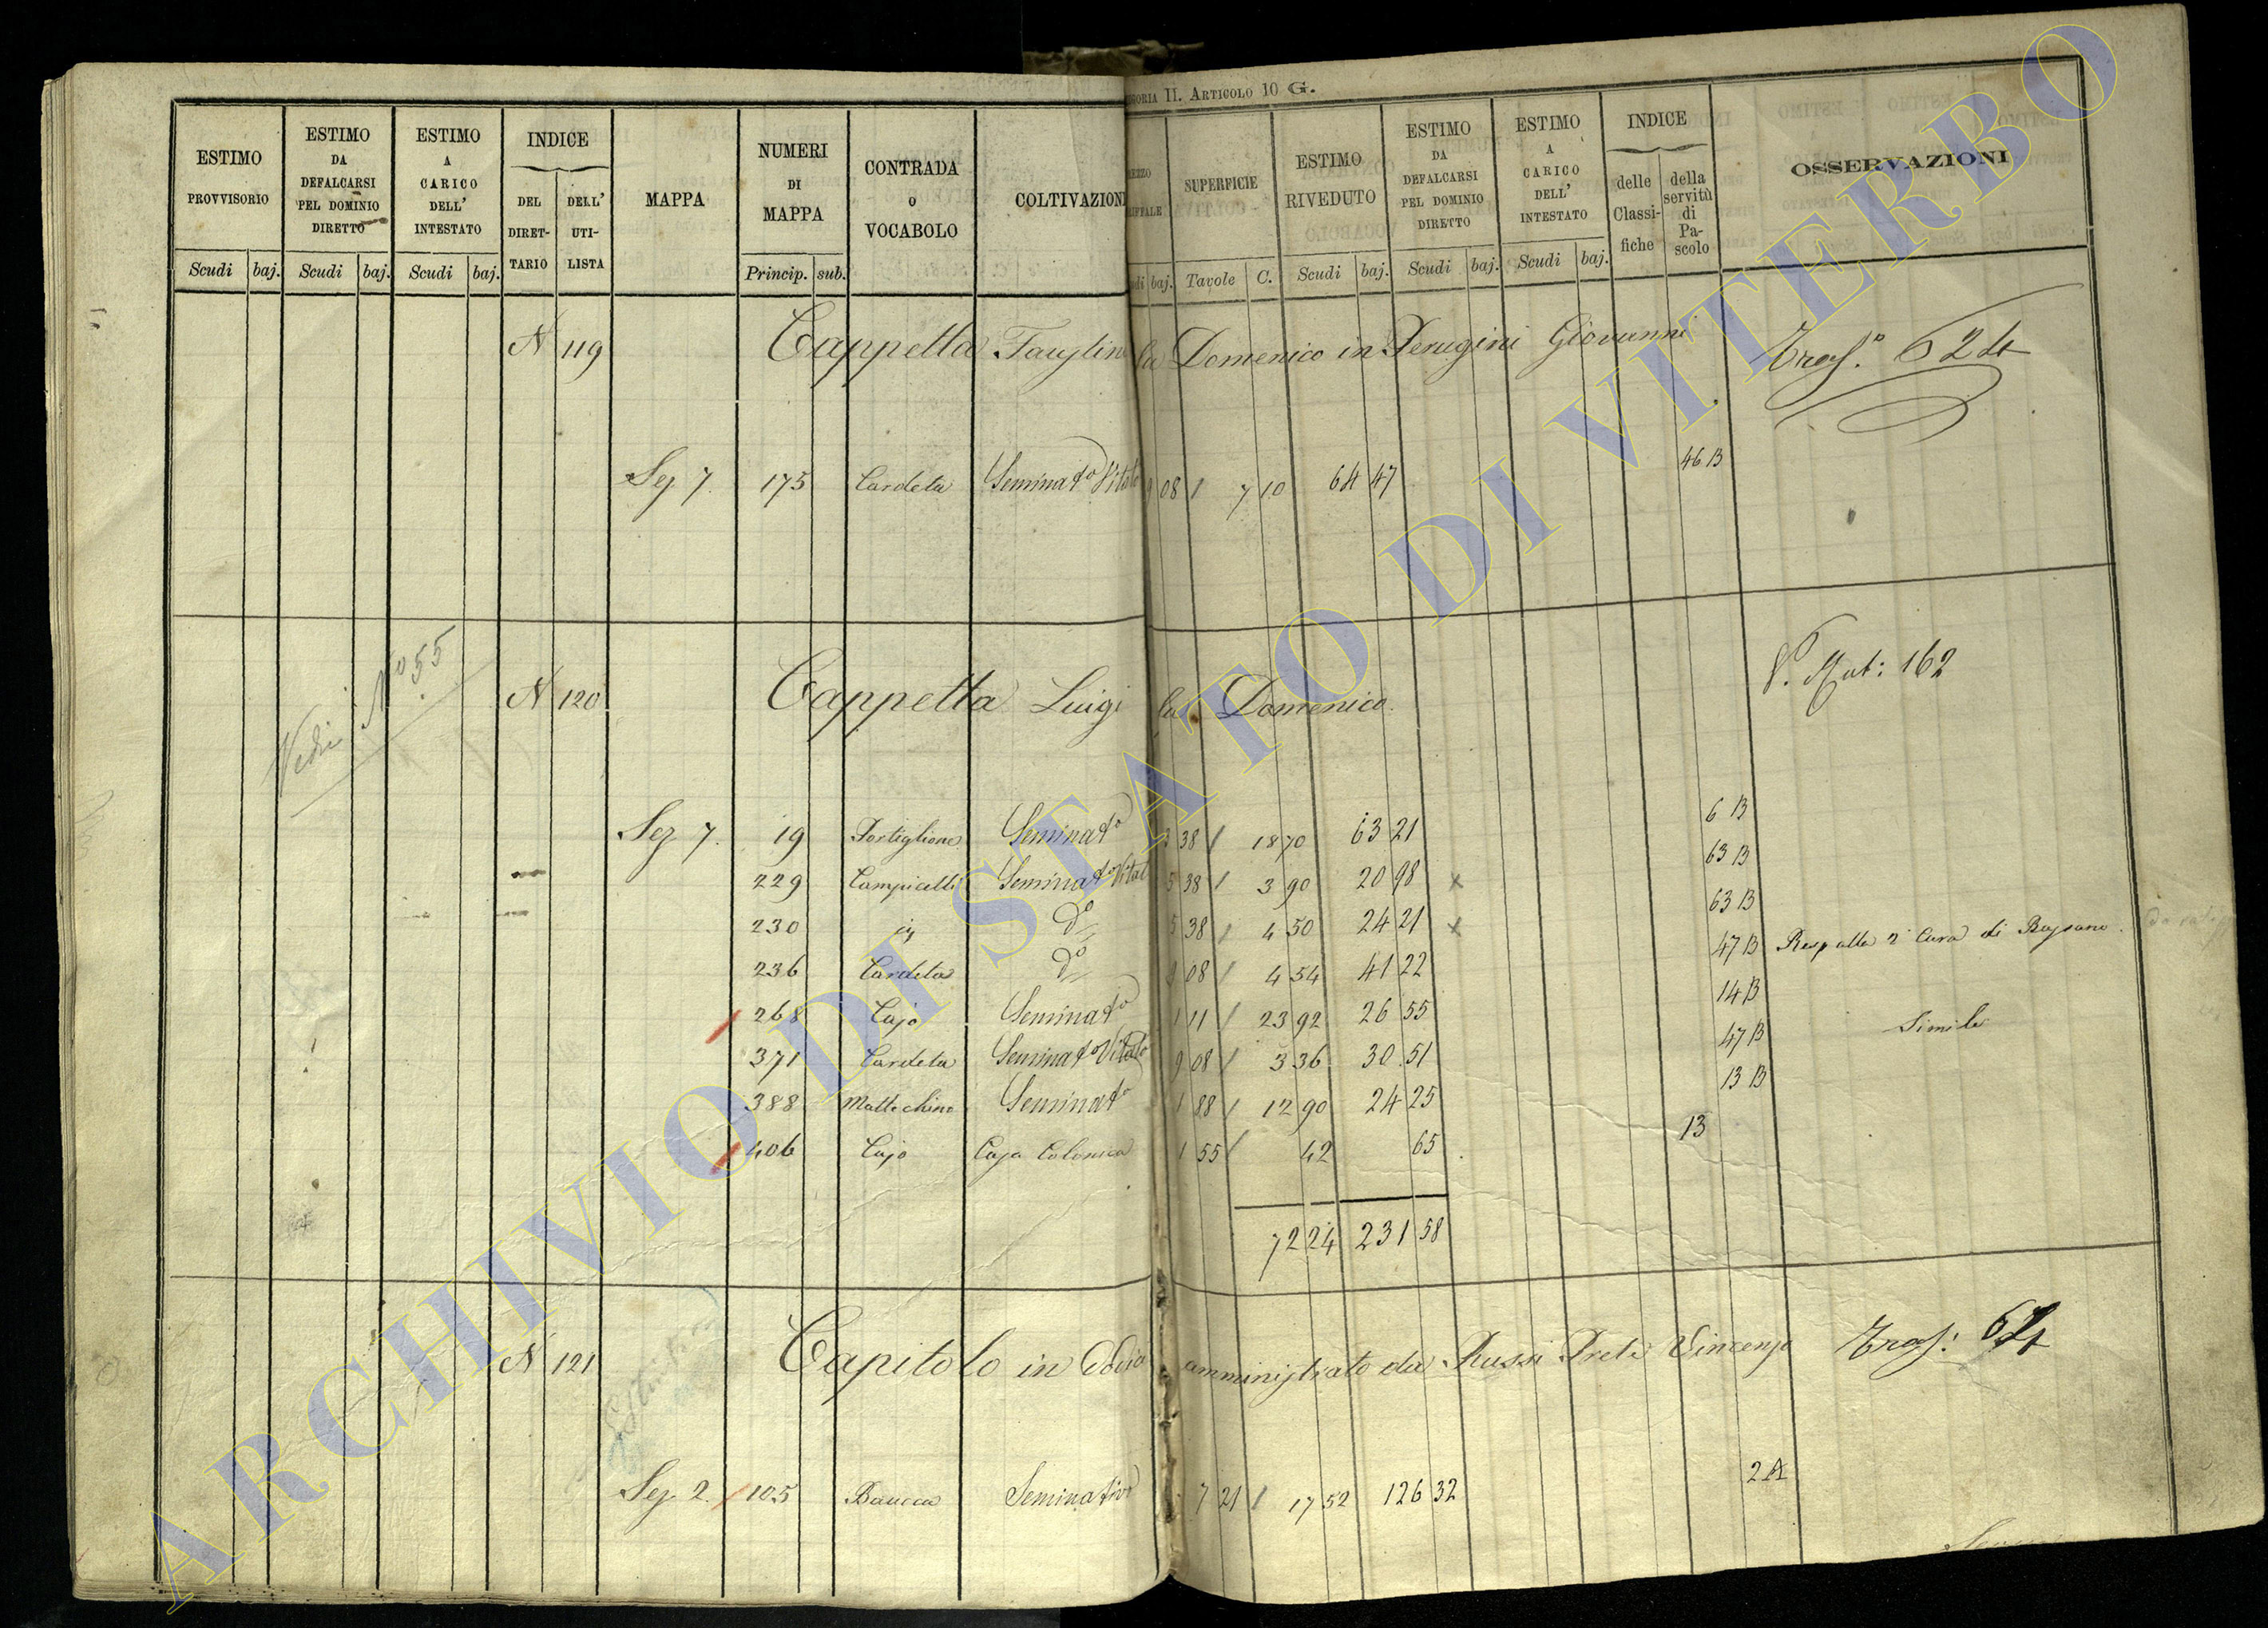 GORIA II. ARTICOLO 10 G.
ESTIMO PROVVISORIO
Scudi baj.
ESTIMO DA DEFALCARSI PEL DOMINIO DIRETTO
Scudi baj.
ESTIMO A CARICO DELL' INTESTATO
Scudi baj.
INDICE
DEL DIRET-TARIO
DELL' UTI-LISTA
MAPPA
NUMERI DI MAPPA
Princip. sub.
CONTRADA O VOCABOLO
COLTIVAZION
REZZO
RIFFALE
di baj.
SUPERFICIE
Tavole C.
ESTIMO RIVEDUTO
Scudi baj.
ESTIMO DA DEFALCARSI PEL DOMINIO DIRETTO
Scudi baj.
ESTIMO A CARICO DELL' INTESTATO
Scudi baj.
INDICE
delle Classi-fiche
della servitù di Pa-scolo
OSSERVAZIONI
N 119 Cappella Domenico in Perugini Giovanni
Sez 7. 175 Cardeta Seminato Vitato 9 08 7 10 64 47 46 B
Vedi No 55
N 120 Cappella Luigi Domenico. 162
Sez 7. 19 Portiglione Seminato 3 38 18 70 63 21 6 B
229 Campicelli Seminato Vitat 5 38 3 90 20 98 x 63 B
230 do 5 38 4 50 24 21 x 63 B
236 Cardeta do 9 08 4 54 41 22 47 B Resp alla 2a Cura di
268 Cajo Seminato 1 11 23 92 26 55 14 B
371 Cardeta Seminato Vitato 9 08 3 36 30 51 47 B Simile
388 Seminato 1 88 12 90 24 25 13 B
406 Cajo Casa Colonica 1 55 42 65 13
72 24 231 58
N 121 Capitolo in amministrato da Russi Prete Vincenzo
Sez 2. 105 Baucca Seminativo 7 21 17 52 126 32 2 A
ARCHIVIO DI STATO DI VITERBO